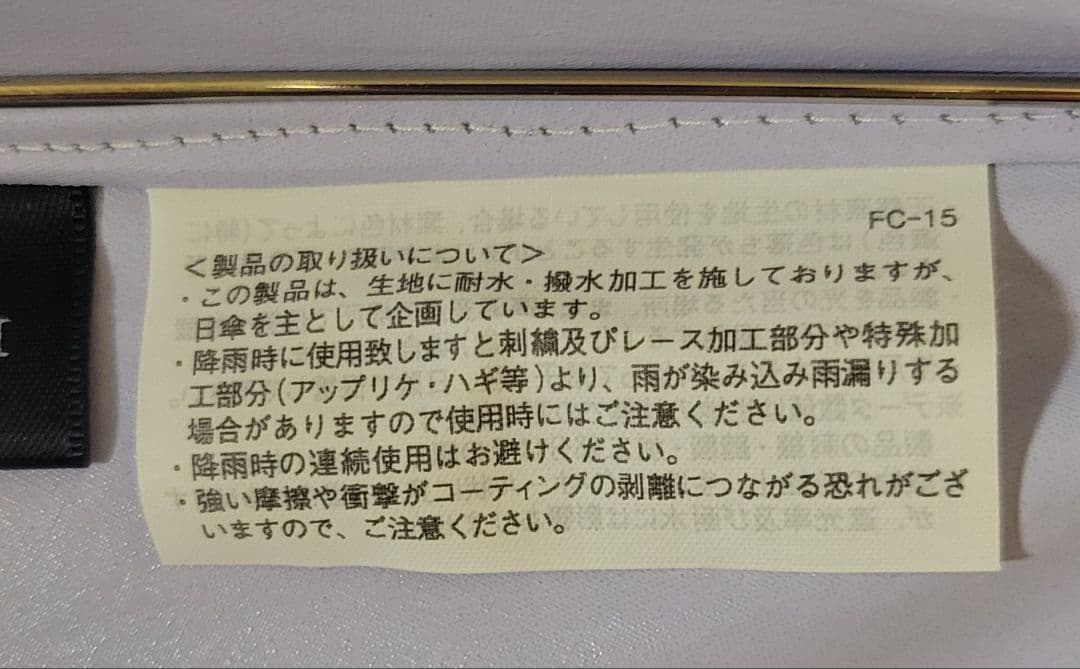 FC-15
＜製品の取り扱いについて＞
・この製品は、生地に耐水・撥水加工を施しておりますが、
日傘を主として企画しています。
・降雨時に使用致しますと刺繍及びレース加工部分や特殊加
工部分(アップリケ・ハギ等)より、雨が染み込み雨漏りする
場合がありますので使用時にはご注意ください。
・降雨時の連続使用はお避けください。
・強い摩擦や衝撃がコーティングの剥離につながる恐れがござ
いますので、ご注意ください。